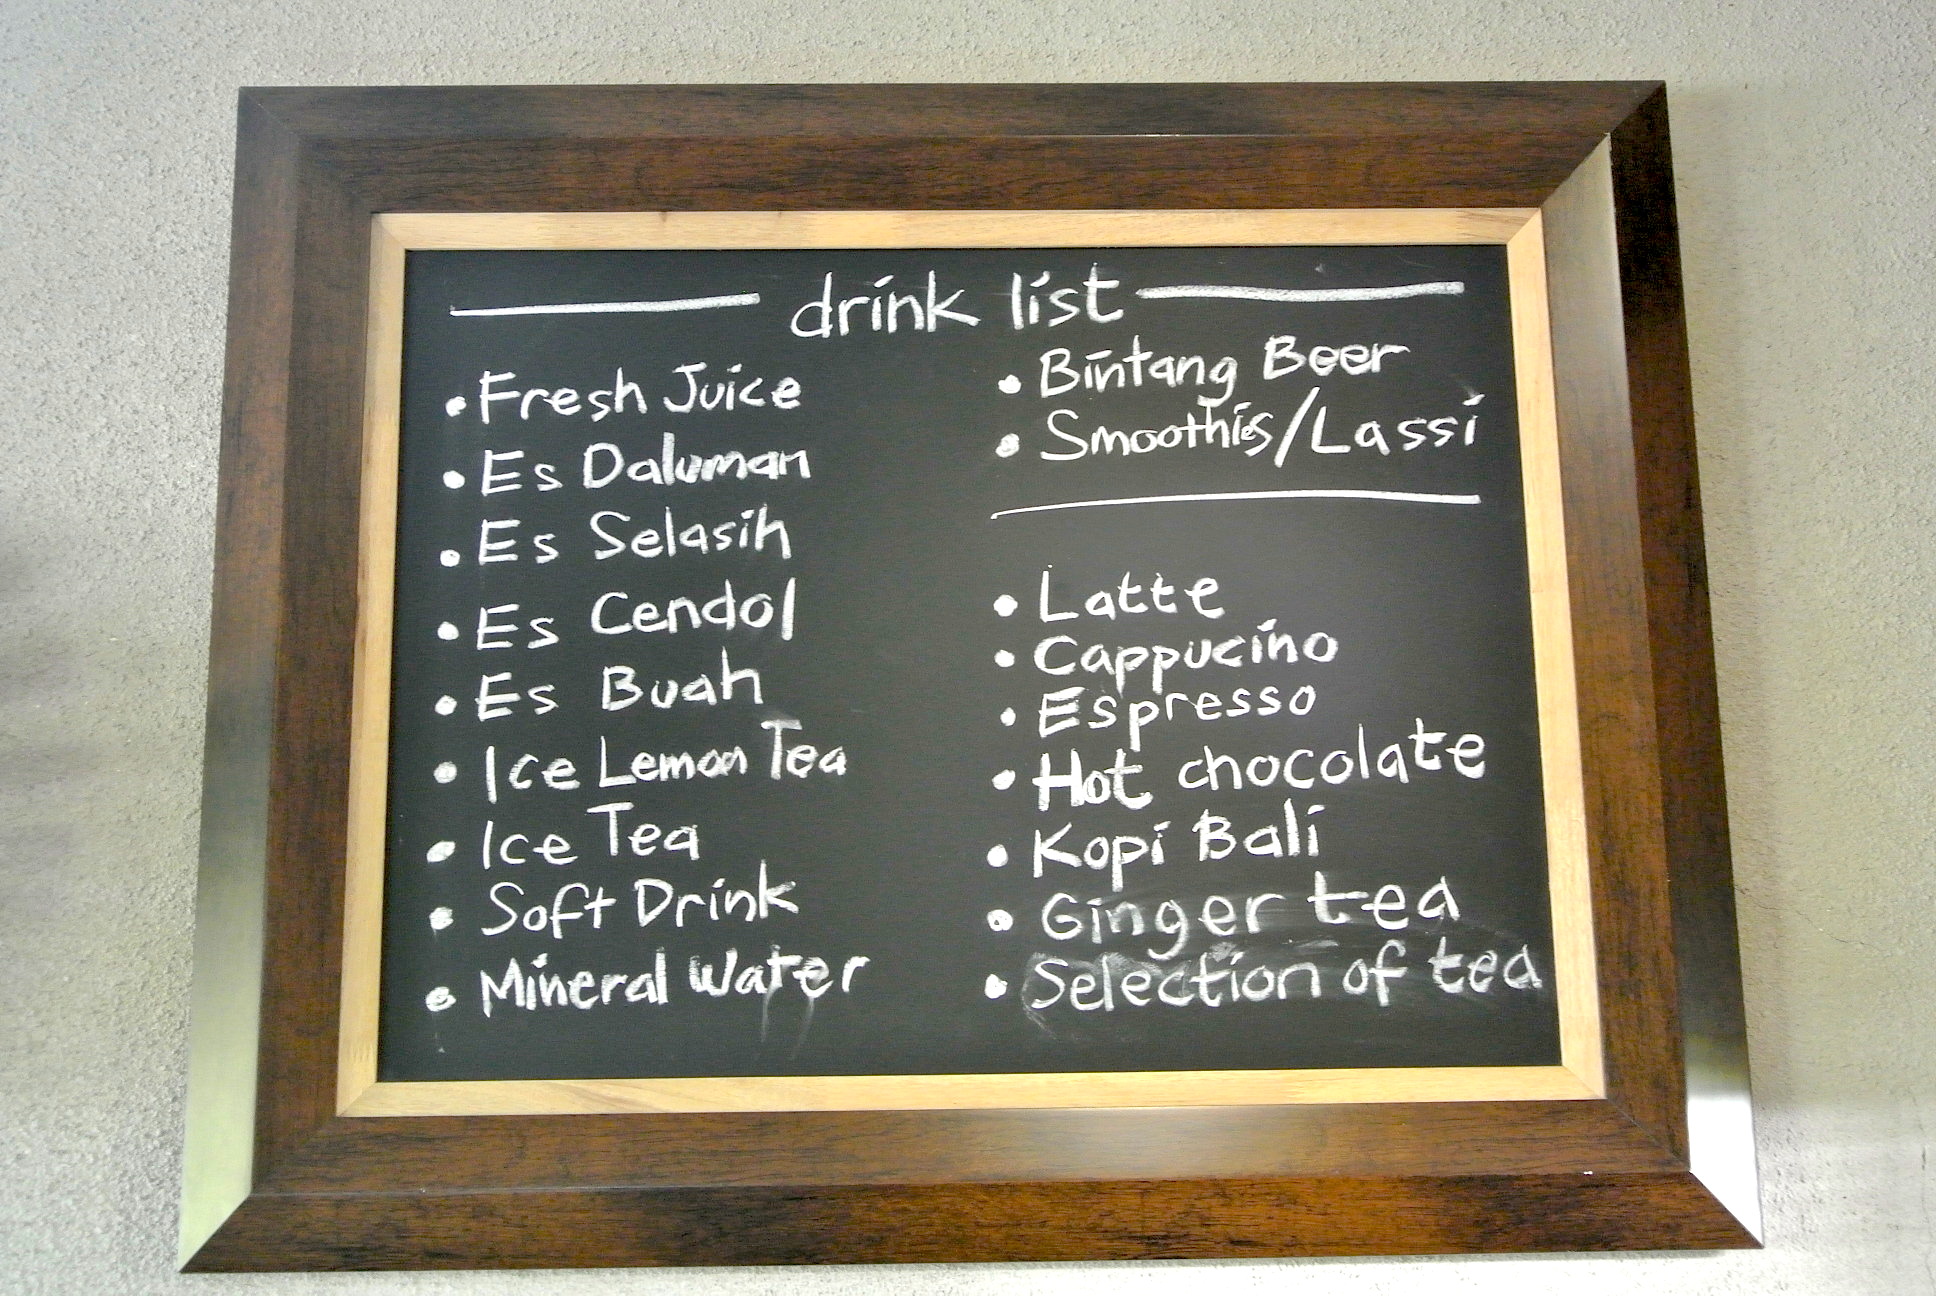 drink list
• Fresh Juice
• Es Daluman
• Es Selasih
• Es Cendol
• Es Buah
• Ice Lemon Tea
• Ice Tea
• Soft Drink
• Mineral Water
• Bintang Beer
• Smoothies/Lassi
• Latte
• Cappucino
• Espresso
• Hot chocolate
• Kopi Bali
• Ginger tea
• Selection of tea